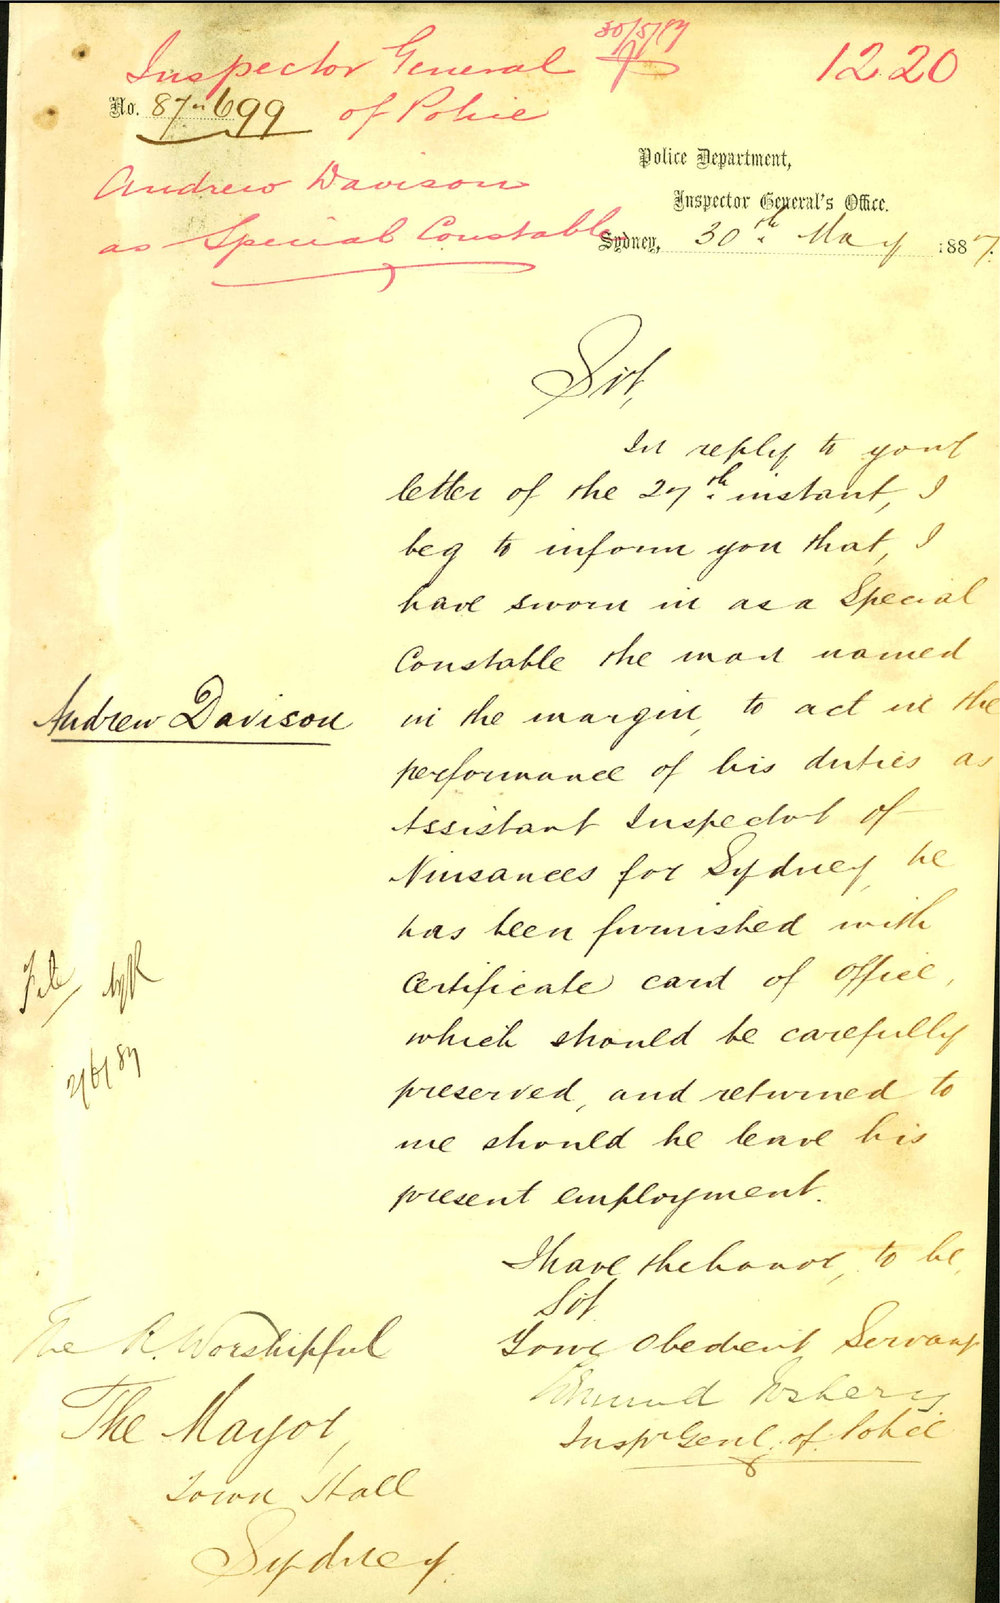 Inspector General
30/5/87
1220
No. 87-699
of Police
Police Department,
Andrew Davison
Inspector General's Office.
as Special Constable
Sydney, 30th May 1887.
Sir,
In reply to your
letter of the 27th instant, I
beg to inform you that, I
have sworn in as a Special
Constable the man named
Andrew Davison
in the margin, to act in the
performance of his duties as
Assistant Inspector of
Niusances for Sydney, he
has been furnished with
Certificate card of office,
which should be carefully
File
2/6/87
preserved, and returned to
me should he leave his
present employment.
I have the honor, to be,
Sir
Your Obedient Servant
Edmund Fosbery
Inspr Genl. of Police
The R. Worshipful
The Mayor,
Town Hall
Sydney.